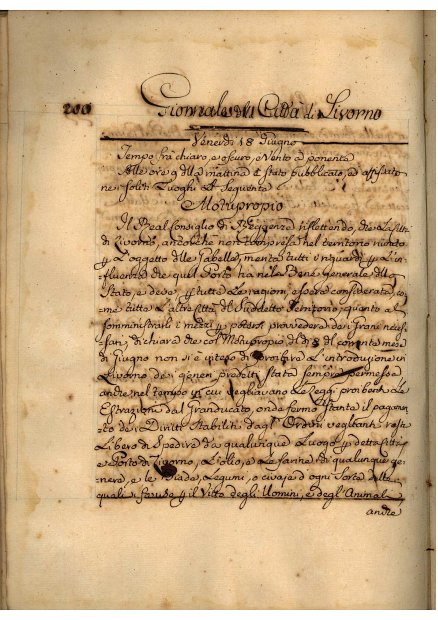 200 Giornale della Città di Livorno
Venerdì 18 Giugno
Tempo frà chiaro, e oscuro, e Vento à ponente
Alle ore 9 della mattina è stato pubblicato, ed affisso
ne soliti Luoghi il Sequente
Motuproprio
Il Real Consiglio di Reggenza riflettendo, che la Città
di Livorno, ancorche non compresa nel territorio riunito
l'oggetto delle Gabelle, merita tutti i riguardi
influenza che quel Porto ha nel Bene Generale dello
Stato, e deve tutte le ragioni essere considerata, co
me tutte l'altre Città del Suddetto Territorio, quanto a
somministrarli i mezzi poter provvedere dei Grani neces
sari, dichiara che col Motuproprio del dì 8 del corrente mese
di Giugno non si è inteso di proibire l'introduzione in
Livorno dei generi predetti stata sempre permessa
anche nel tempo in cui vegliavano le Leggi proibenti le
Estrazioni dal Granducato, onde fermo stante il pagamen
to dei Diritti Stabiliti dagl' Ordini veglianti resti
Libero di Spedire da qualunque Luogo detta Città
e Porto di Livorno, l'olio, e le farine di qualunque ge
nere, e le Biade, Legumi, o civaje d'ogni Sorte delle
quali il Vitto degli Uomini, e degl' Animali
anche